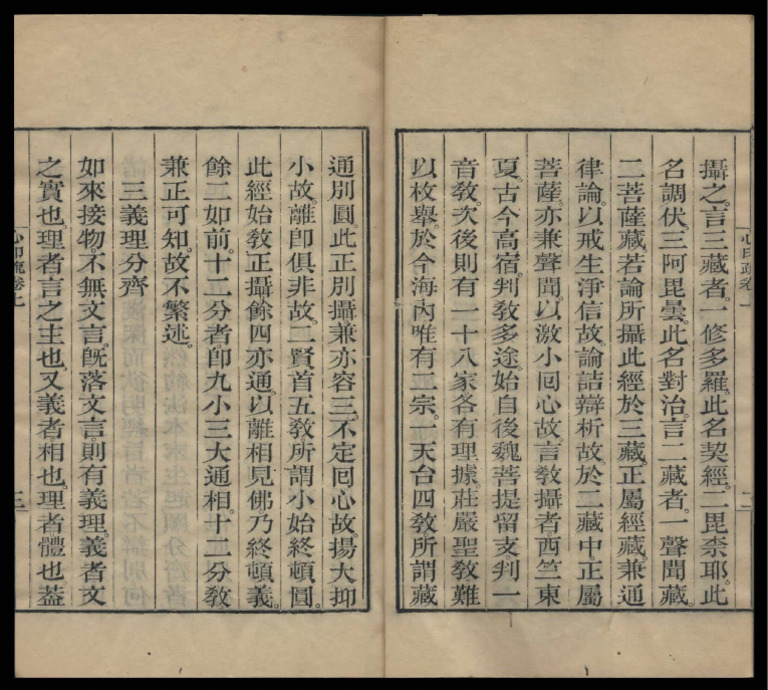 攝之。言三藏者。一修多羅。此名契經。二毘柰耶。此
名調伏。三阿毘曇。此名對治。言二藏者。一聲聞藏。
二菩薩藏。若論所攝此經於三藏。正屬經藏。兼通
律論。以戒生淨信故。論詰辯析故。於二藏中正屬
菩薩。亦兼聲聞。以激小囘心故。言敎攝者西竺東
夏。古今高宿。判敎多途。始自後魏菩提留支判一
音敎。次後則有一十八家各有理據。莊嚴聖敎難
以枚舉。於今海內唯有二宗。一天台四敎。所謂藏
通別圓。此正別攝兼亦容三。不定囘心故。揚大抑
小故。離卽俱非故。二賢首五敎。所謂小始終頓圓。
此經始敎正攝。餘四亦通。以離相見佛乃終頓義。
餘二如前。十二分者。卽九小三大通相。十二分敎
兼正可知。故不繁述。
三義理分齊
如來接物。不無文言。旣落文言。則有義理。義者文
之實也。理者言之主也。又義者相也。理者體也葢
心印疏卷上
三